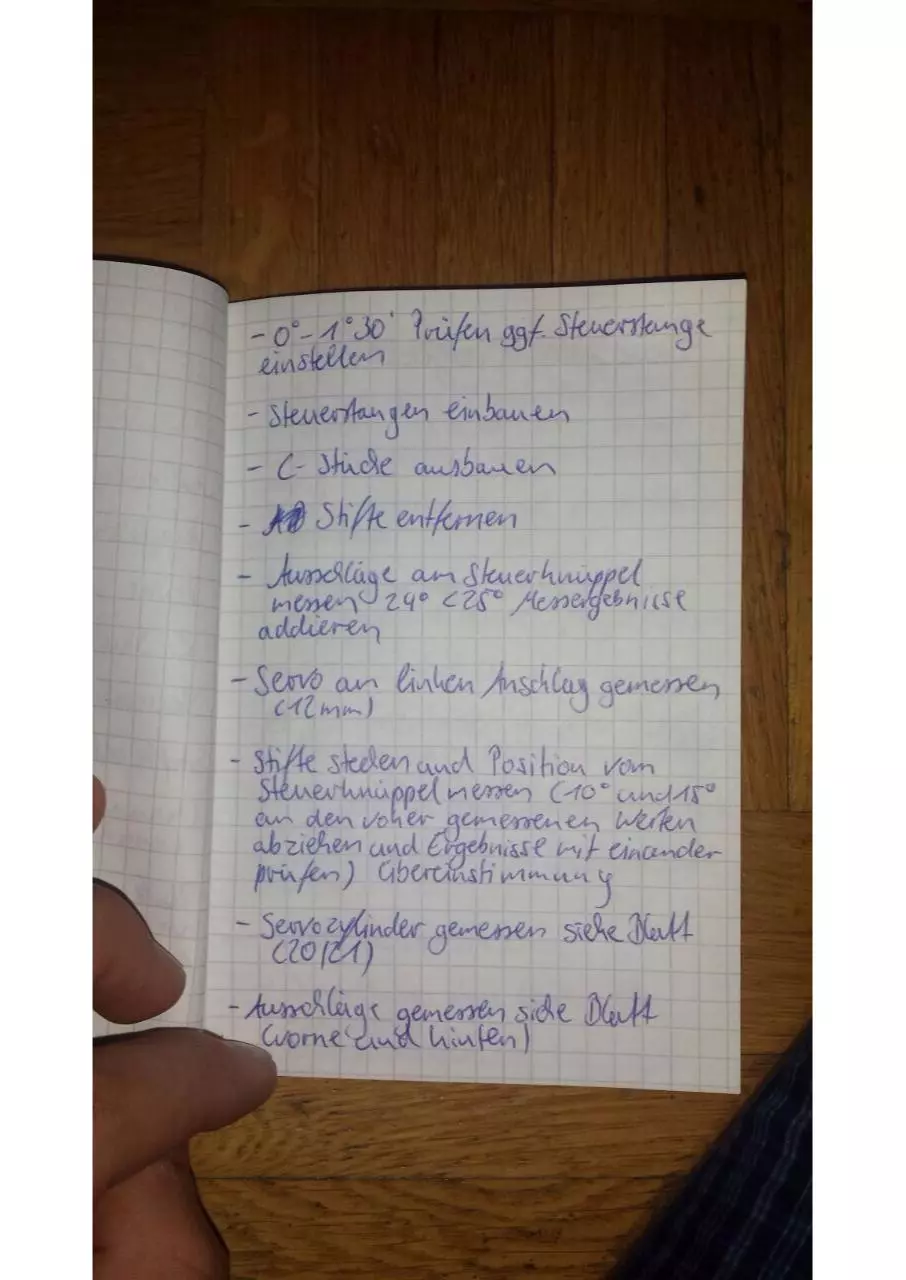 - 0° - 1°30' Prüfen ggf. Steuerstange
einstellen
- Steuerstangen einbauen
- C-Stücke ausbauen
- Stifte entfernen
- Ausschläge am Steuerknüppel
messen 24° <25° Messergebnisse
addieren
- Servo an linken Anschlag gemessen
(12mm)
- Stifte stecken und Position vom
Steuerknüppel messen (10° und 18°
an den voher gemessenen Werten
abziehen und Ergebnisse mit einander
prüfen) Übereinstimmung
- Servozylinder gemessen siehe Blatt
(20/21)
- Ausschläge gemessen siehe Blatt
(vorne und hinten)